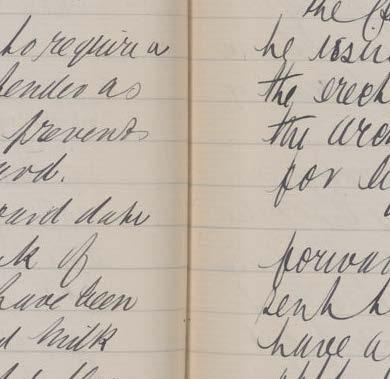 ho require a
tender as
prevents
and.
oard date
k of
have been
d milk
the
he
the erect
the
for
forwar
sent h
have a